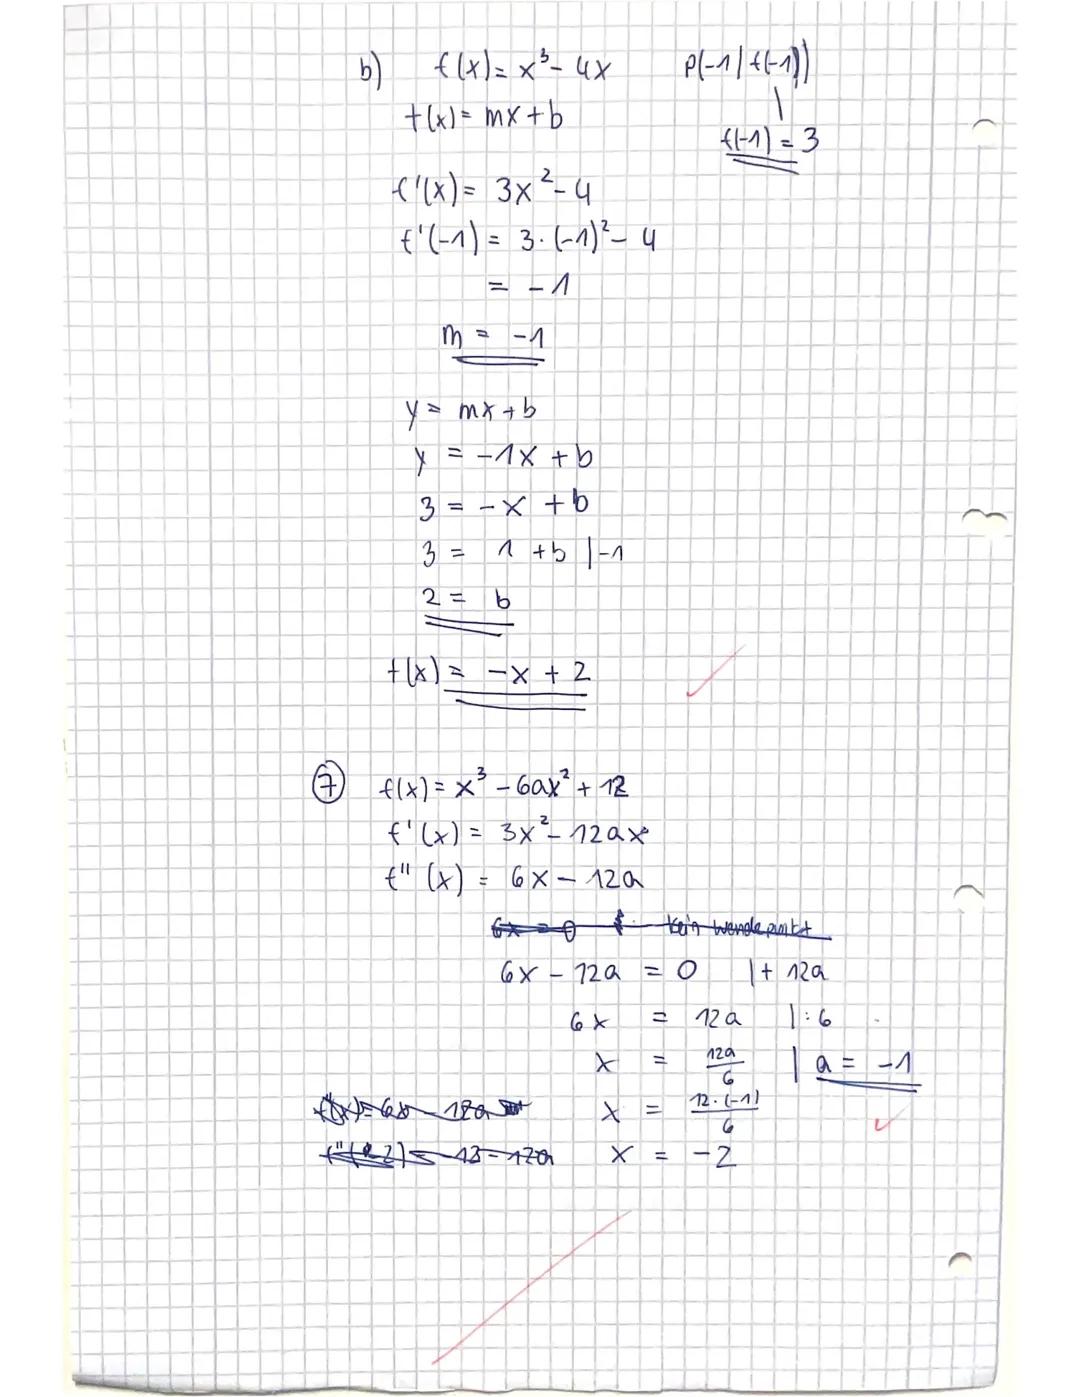 b) f(x) = x³ - 4x P(-1 | f(-1))
t(x) = mx + b
f(-1) = 3
f'(x) = 3x² - 4
f'(-1) = 3 · (-1)² - 4
= -1
m = -1
y = mx + b
y = -1x + b
3 = -x + b
3 = 1 + b | -1
2 = b
t(x) = -x + 2
⑦ f(x) = x³ - 6ax² + 12
f'(x) = 3x² - 12ax
f''(x) = 6x - 12a
6x = 0 kein Wendepunkt
6x - 12a = 0 | + 12a
6x = 12a | : 6
x = 12a/6 | a = -1
f''(x) = 6x - 12a x = 12·(-1)/6
x = -2